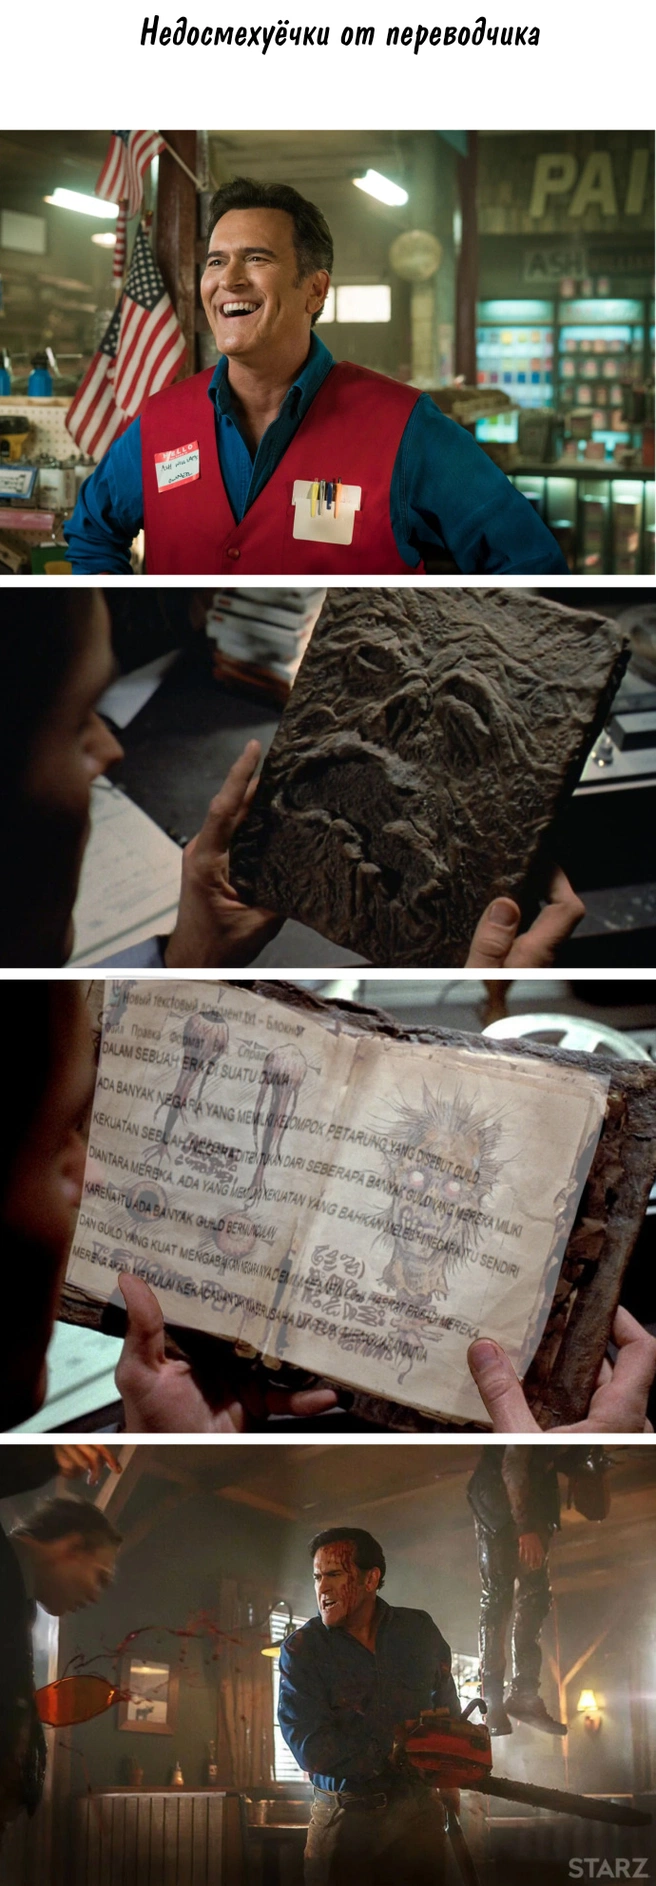 Недосмехуёчки от переводчика
PAI
ASH
HELLO
Новый текстовый документ.txt – Блокнот
Правка Формат Справка
DALAM SEBUAH ERA DI SUATU DUNIA
ADA BANYAK NEGARA YANG MEMILIKI KELOMPOK PETARUNG YANG DISEBUT GUILD
KEKUATAN SEBUAH NEGARA DITENTUKAN DARI SEBERAPA BANYAK GUILD YANG MEREKA MILIKI
DIANTARA MEREKA, ADA YANG MEMILIKI KEKUATAN YANG BAHKAN MELEBIHI NEGARA ITU SENDIRI
KARENA ITU ADA BANYAK GUILD BERMUNCULAN
DAN GUILD YANG KUAT MENGABAIKAN MEREKA
MEREKA AKAN MEMULAI KEKACAUAN DUNIA
STARZ